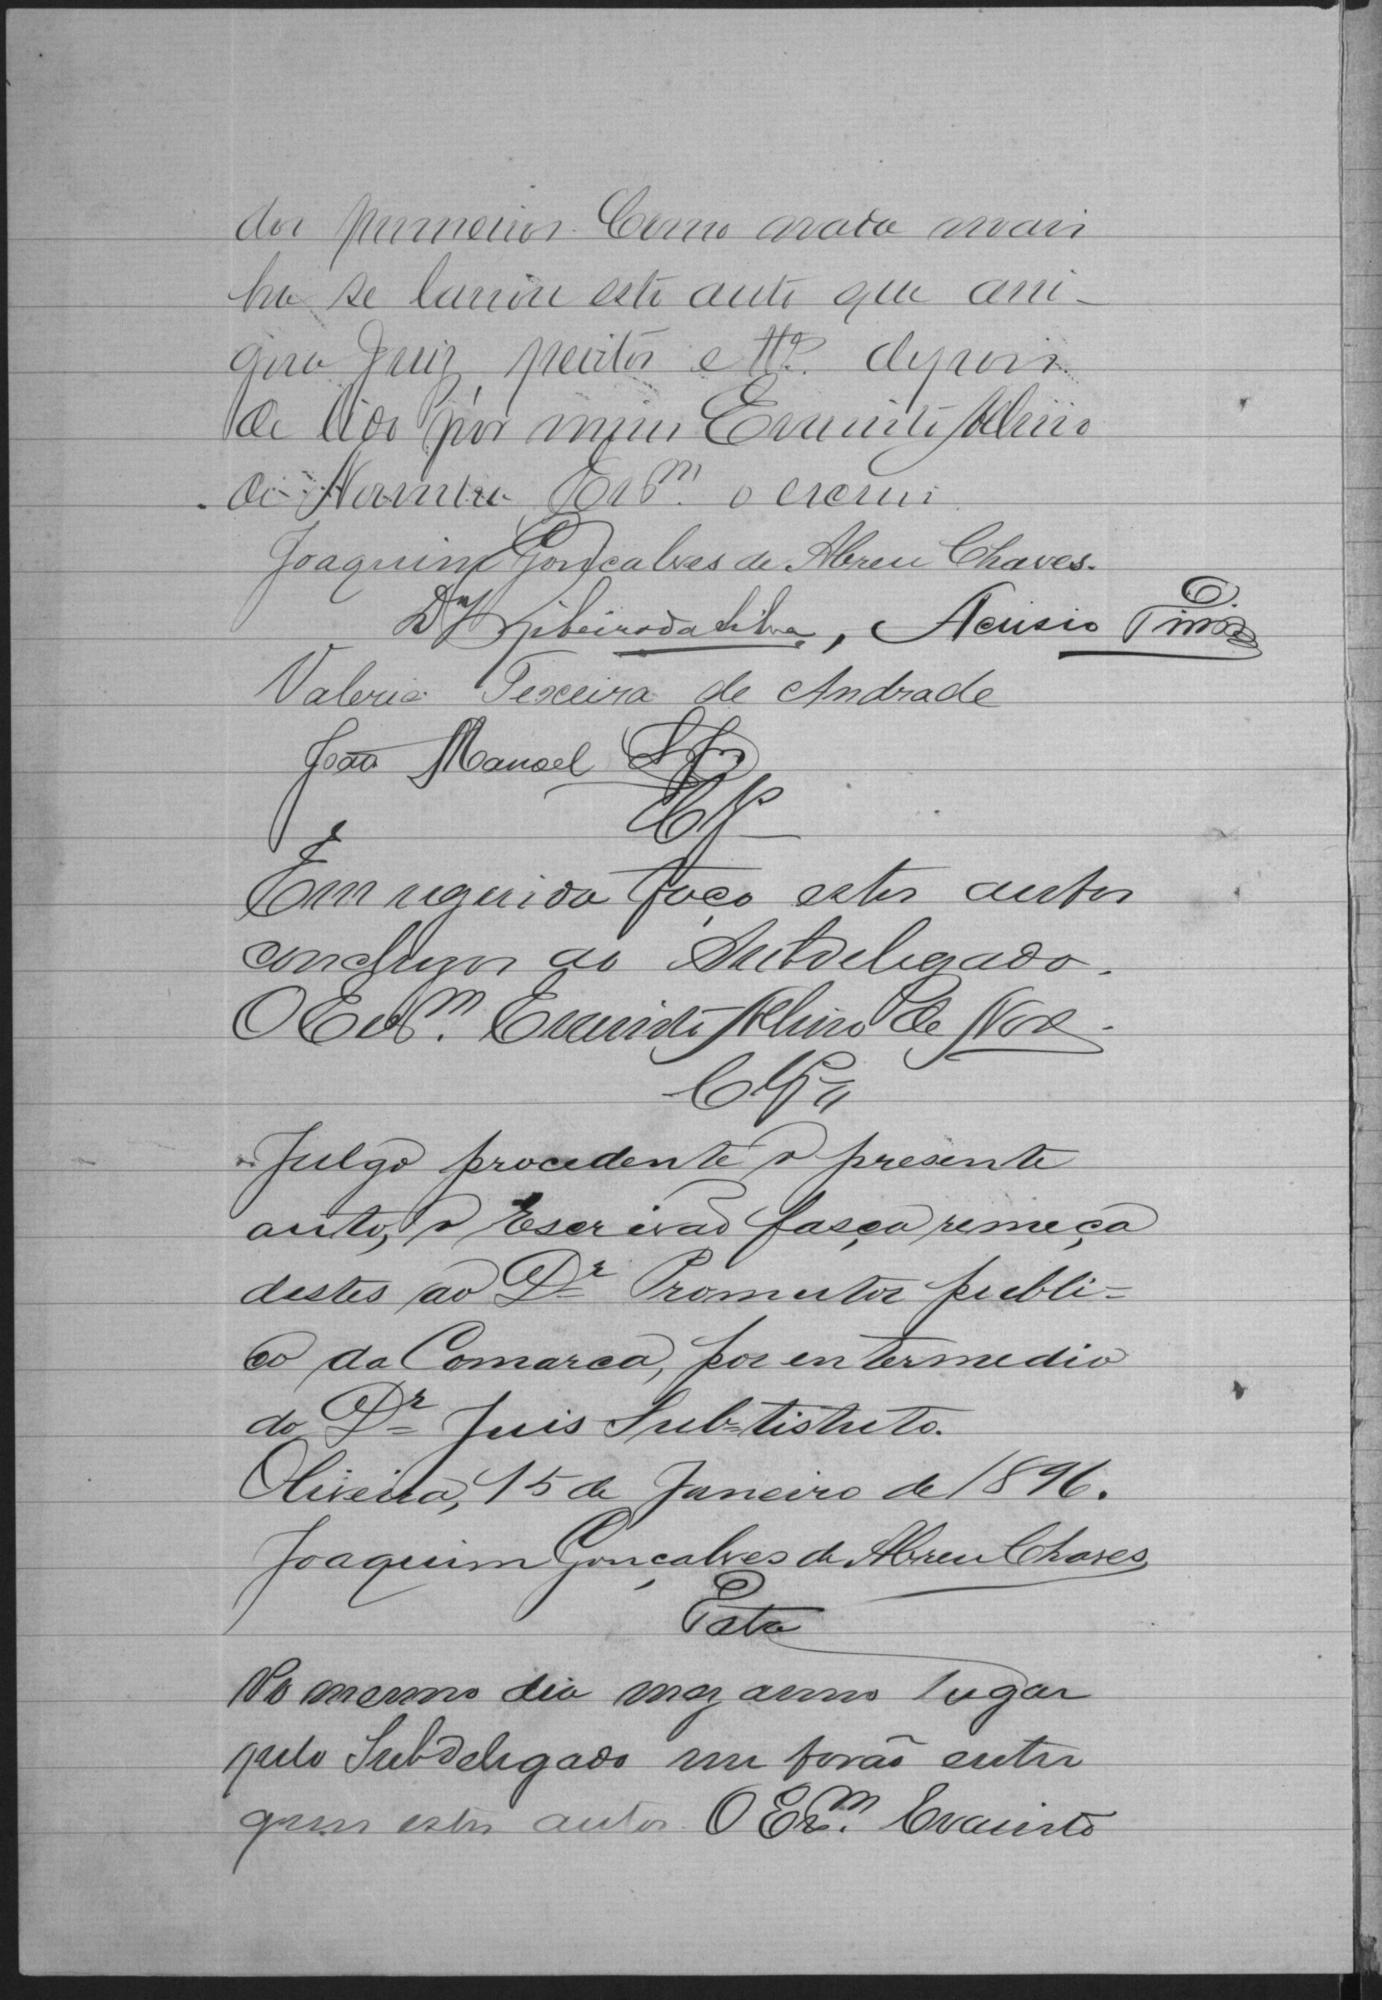 dos primeiros. Como nada mais
ha se lavrou este auto que assi-
gna Juiz, peritos e ttas. depois
de lido por mim Evaristo Albino
de Noronha Escm. o escrevi
Joaquim Gonçalves de Abreu Chaves.
Ribeiro da Silva, Acrisio
Valerio Texeira de Andrade
João Manoel
Clz
Em seguida faço estes autos
conclusos ao Subdelegado.
O Escm. Evaristo Albino de Nora
Clz
Julgo procedente o presente
auto, o Escrivão fasça remeça
destes ao Dr Promutor publi-
co da Comarca, por entermedio
do Dr Juis Sub=tistuto.
Oliveira, 15 de Janeiro de 1896.
Joaquim Gonçalves de Abreu Chaves
Data
No mesmo dia mez anno lugar
pelo Subdelegado me forão entre
gues estes autos. O Escm. Evaristo